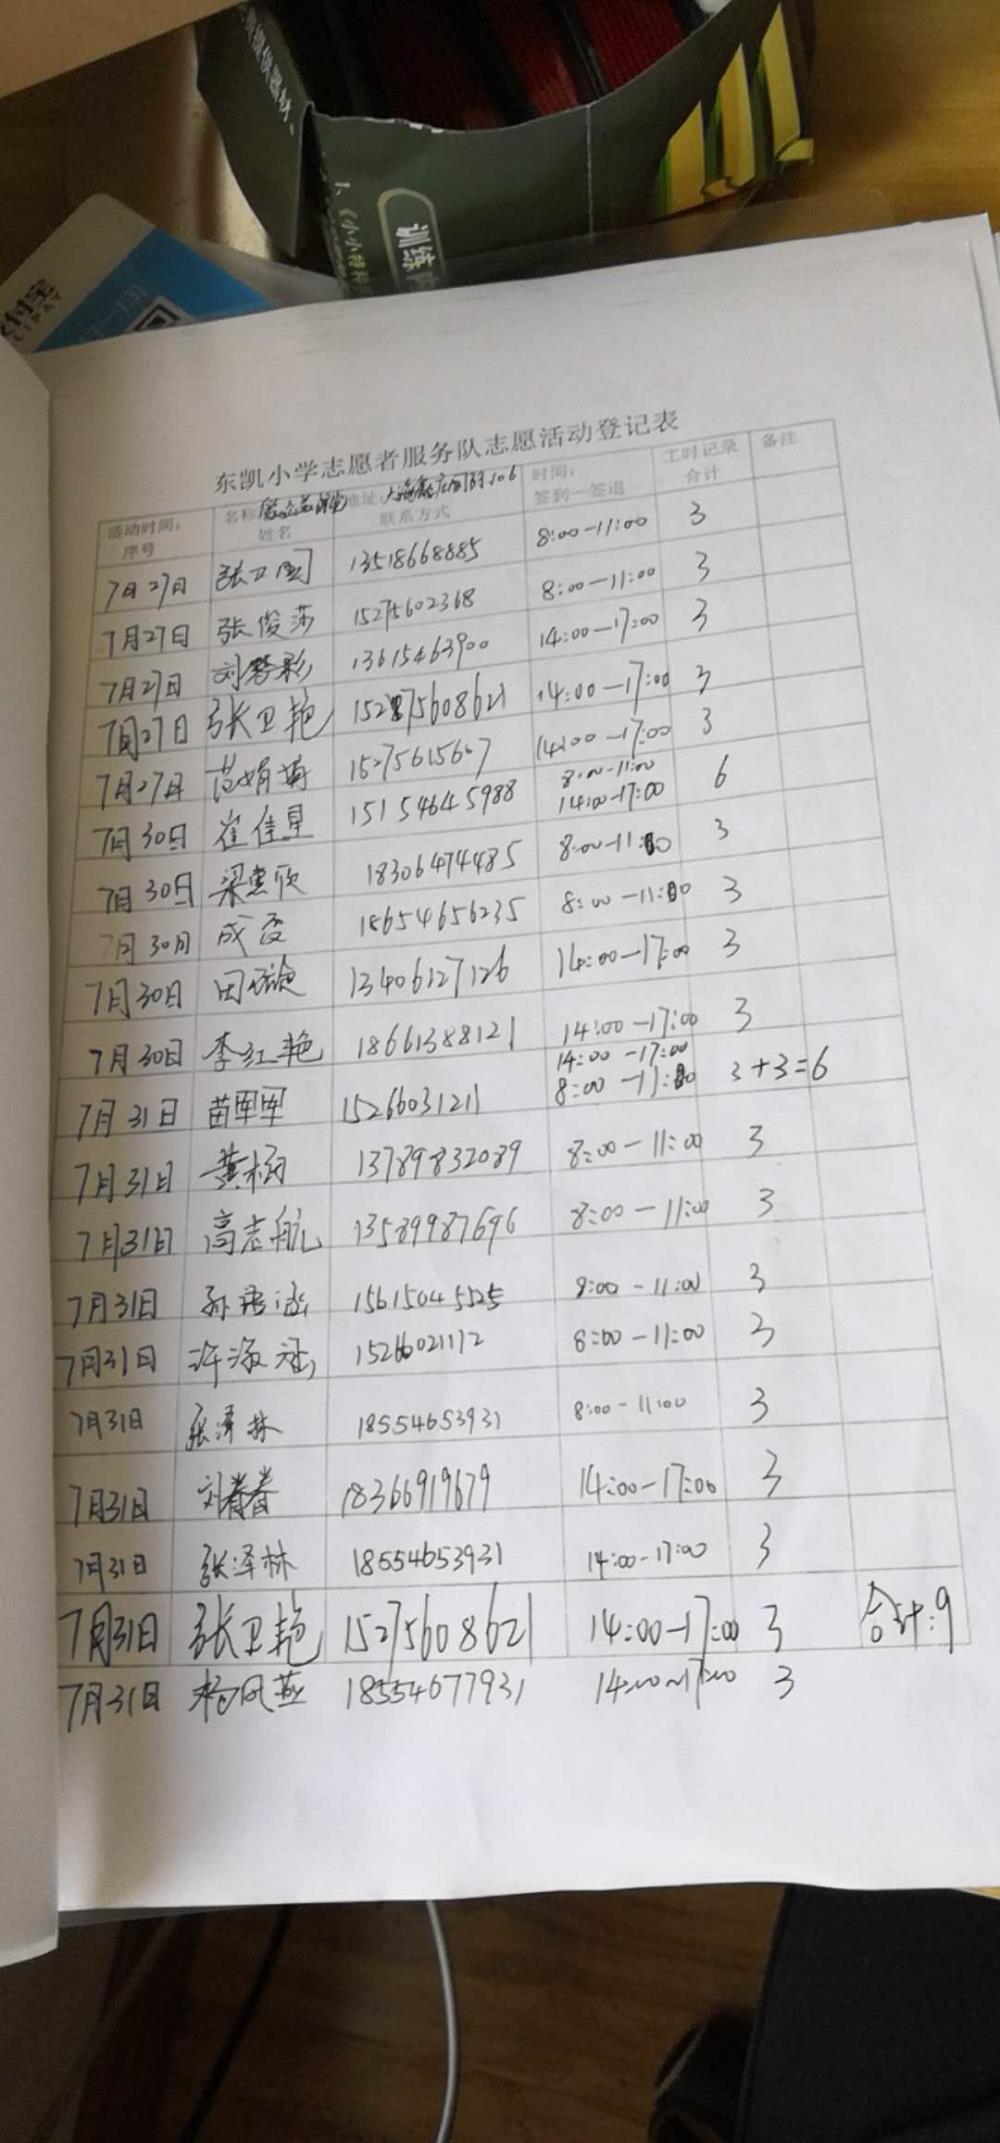 训练
1、《小小特种
东凯小学志愿者服务队志愿活动登记表
活动时间： 名称 地址： 时间： 工时记录 备注
序号 姓名 联系方式 签到—签退 合计
7月27日 张卫国 13518668885 8:00—11:00 3
7月27日 张俊莎 15275602368 8:00—11:00 3
7月27日 刘 彩 13615463900 14:00—17:00 3
7月27日 张卫艳 15275608621 14:00—17:00 3
7月27日 范娟娟 15275615607 14:00—17:00 3
8:00-11:00
7月30日 崔佳星 15154645988 14:00-17:00 6
7月30日 梁惠欣 18306474485 8:00-11:00 3
7月30日 成 18654656235 8:00-11:00 3
7月30日 田 13406127126 14:00-17:00 3
7月30日 李红艳 18661388121 14:00-17:00 3
14:00-17:00
7月31日 苗军军 15266031211 8:00-11:00 3+3=6
7月31日 黄杨 13789832089 8:00-11:00 3
7月31日 高志航 13589987696 8:00-11:00 3
7月31日 孙 涵 15615045525 8:00-11:00 3
7月31日 许 涵 15266021172 8:00-11:00 3
7月31日 张泽林 18554653931 8:00-11:00 3
7月31日 刘春春 18366919679 14:00-17:00 3
7月31日 张泽林 18554653931 14:00-17:00 3
7月31日 张卫艳 15275608621 14:00-17:00 3 合计:9
7月31日 杨风燕 18554677931 14:00-17:00 3